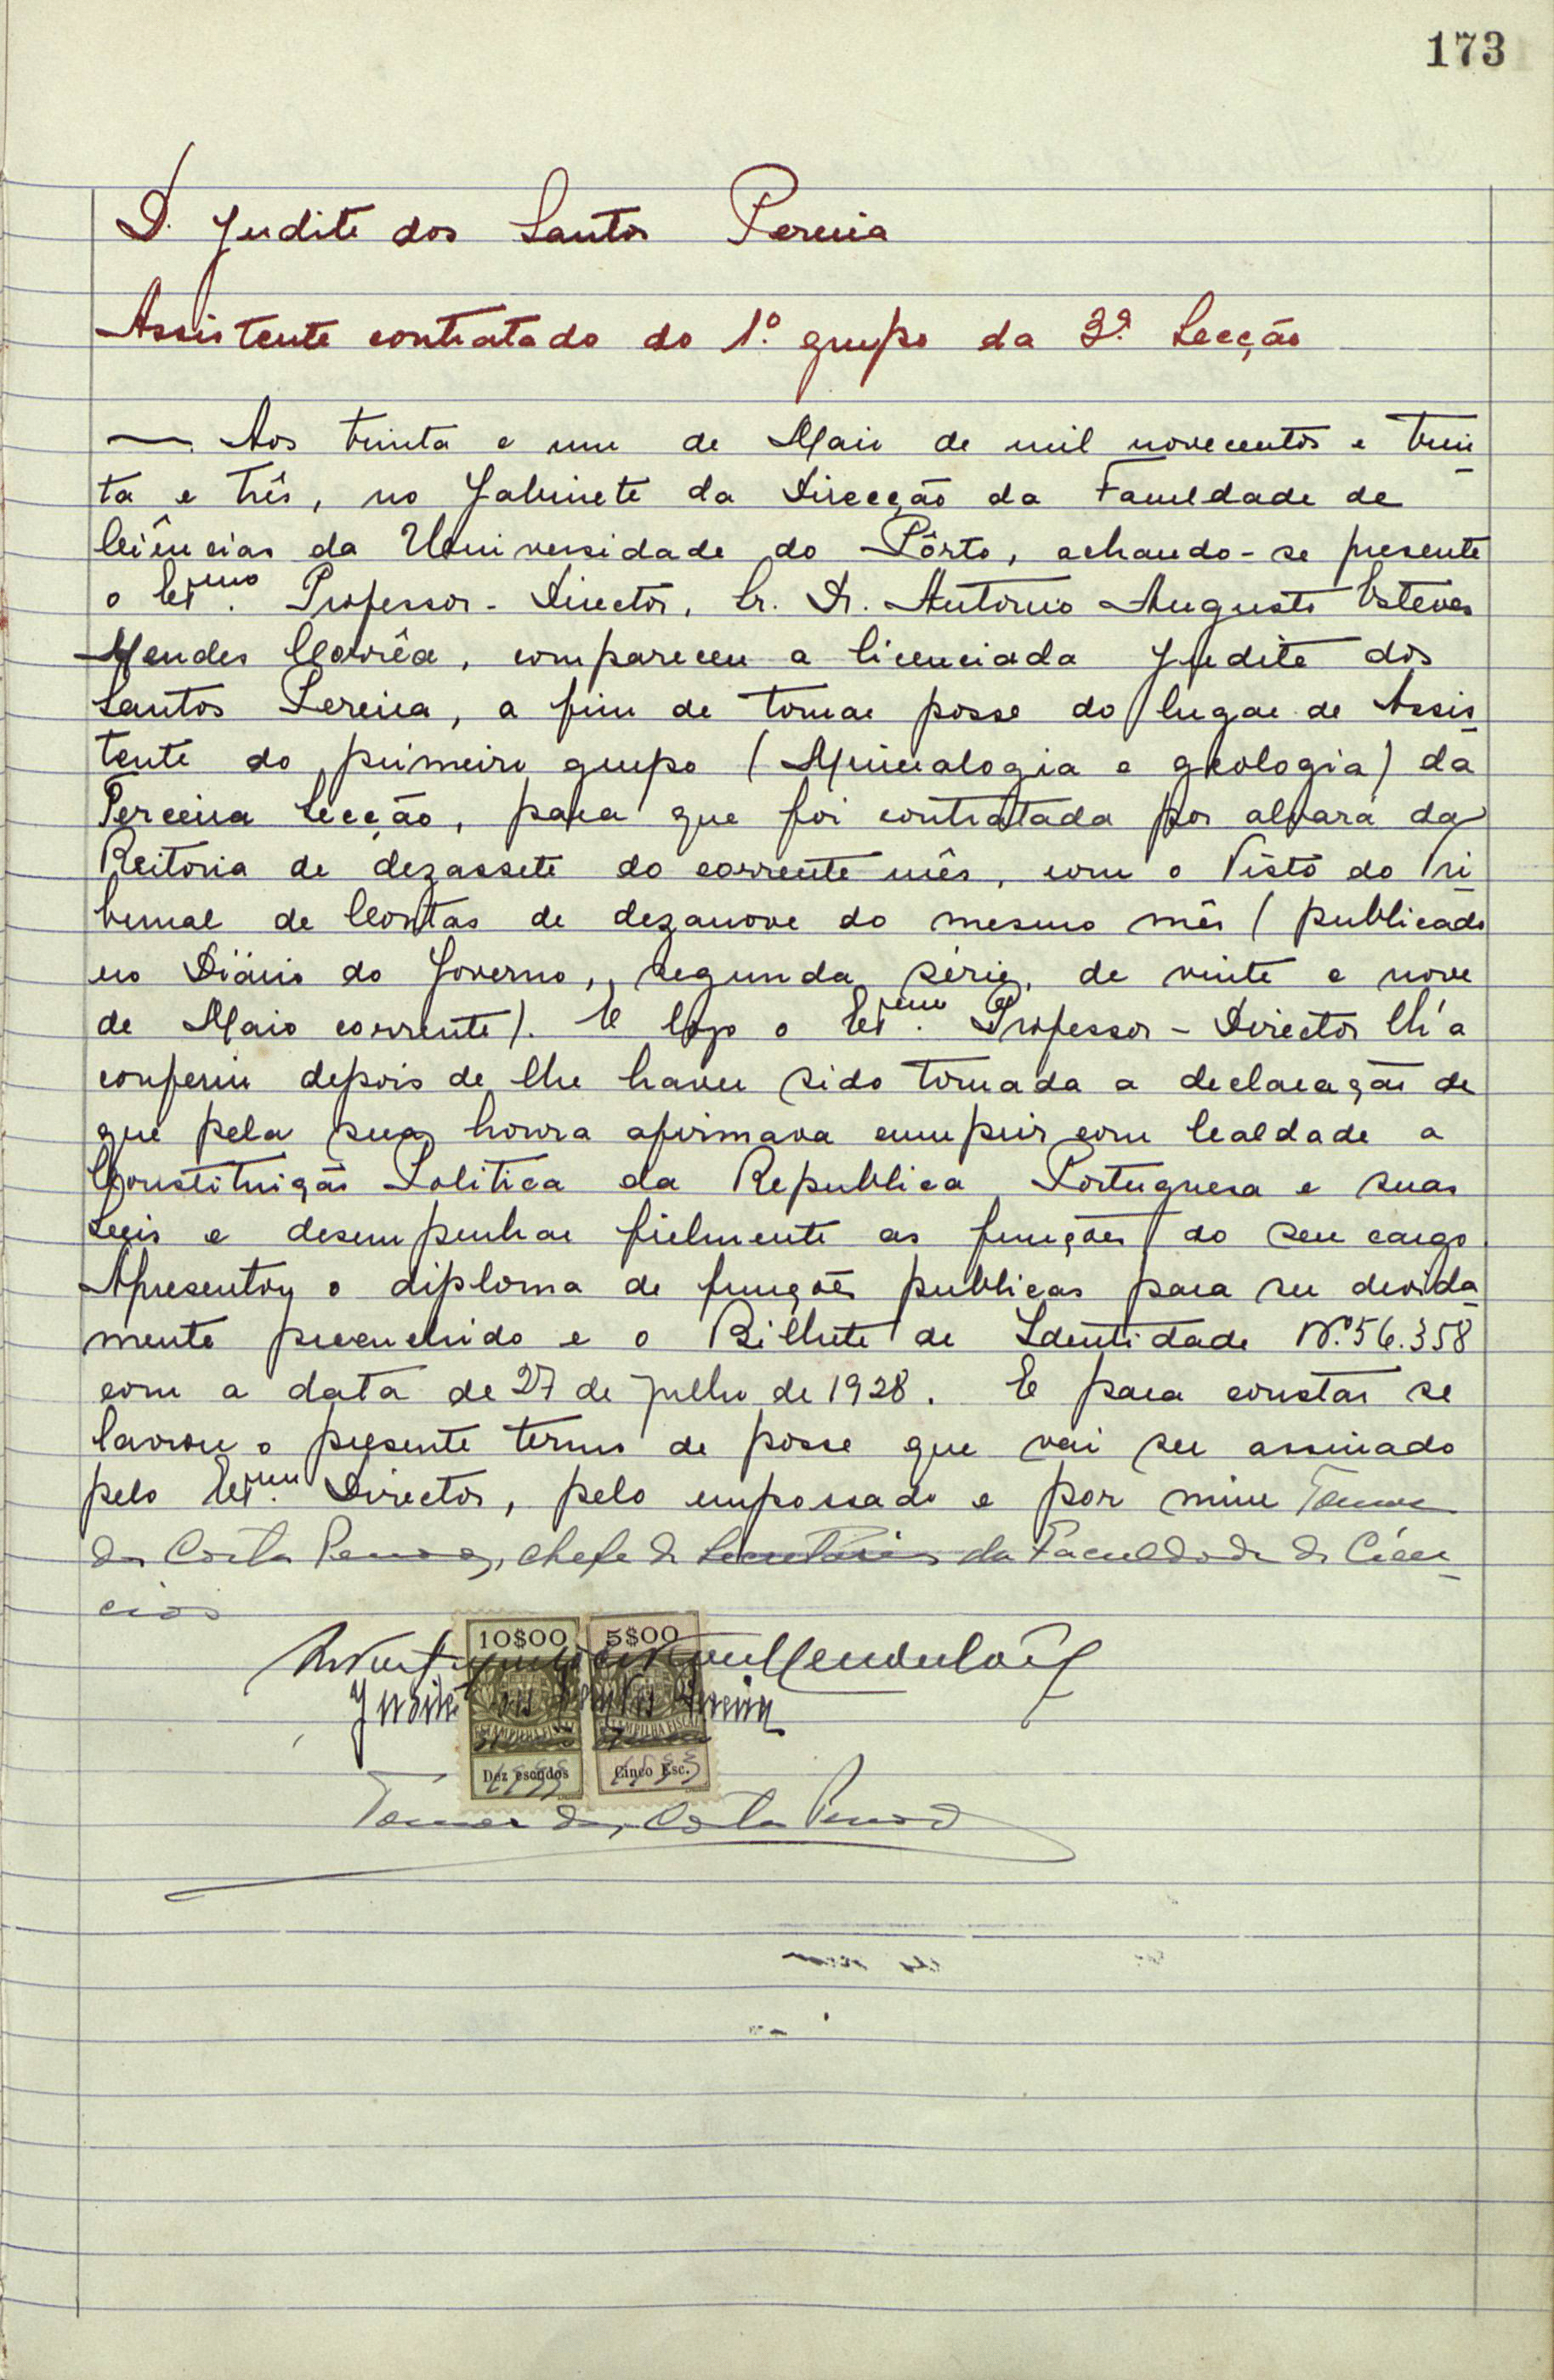 173
D. Judite dos Santos Pereira
Assistente contratado do 1.º grupo da 3ª. Secção
— Aos trinta e um de Maio de mil novecentos e trin
ta e três, no Gabinete da Direcção da Faculdade de
Ciências da Universidade do Pôrto, achando-se presente
o Exmo. Professor-Director, Sr. Dr. António Augusto Esteves
Mendes Corrêa, compareceu a licenciada Judite dos
Santos Pereira, a fim de tomar posse do lugar de Assis
tente do primeiro grupo (Mineralogia e geologia) da
Terceira Secção, para que foi contratada por alvará da
Reitoria de dezassete do corrente mês, com o Visto do Tri
bunal de Contas de dezanove do mesmo mês (publicado
no Diário do Governo, segunda série, de vinte e nove
de Maio corrente). E logo o Exmo. Professor-Director lh'a
conferiu depois de lhe haver sido tomada a declaração de
que pela sua honra afirmava cumprir com lealdade a
Constituição Politica da Republica Portuguesa e suas
Leis e desempenhar fielmente as funções do seu cargo.
Apresentou o diploma de funções publicas para ser devida
mente preenchido e o Bilhete de Identidade N.º 56.358
com a data de 27 de Julho de 1928. E para constar se
lavrou o presente termo de posse que vai ser assinado
pelo Exmo. Director, pelo empossado e por mim
da Costa chefe da Secretaria da Faculdade de Ciên
cias
10$00 5$00
Judite dos Santos Pereira
ESTAMPILHA FISCAL ESTAMPILHA FISCAL
Dez escudos Cinco Esc.
1933 1933
da Costa